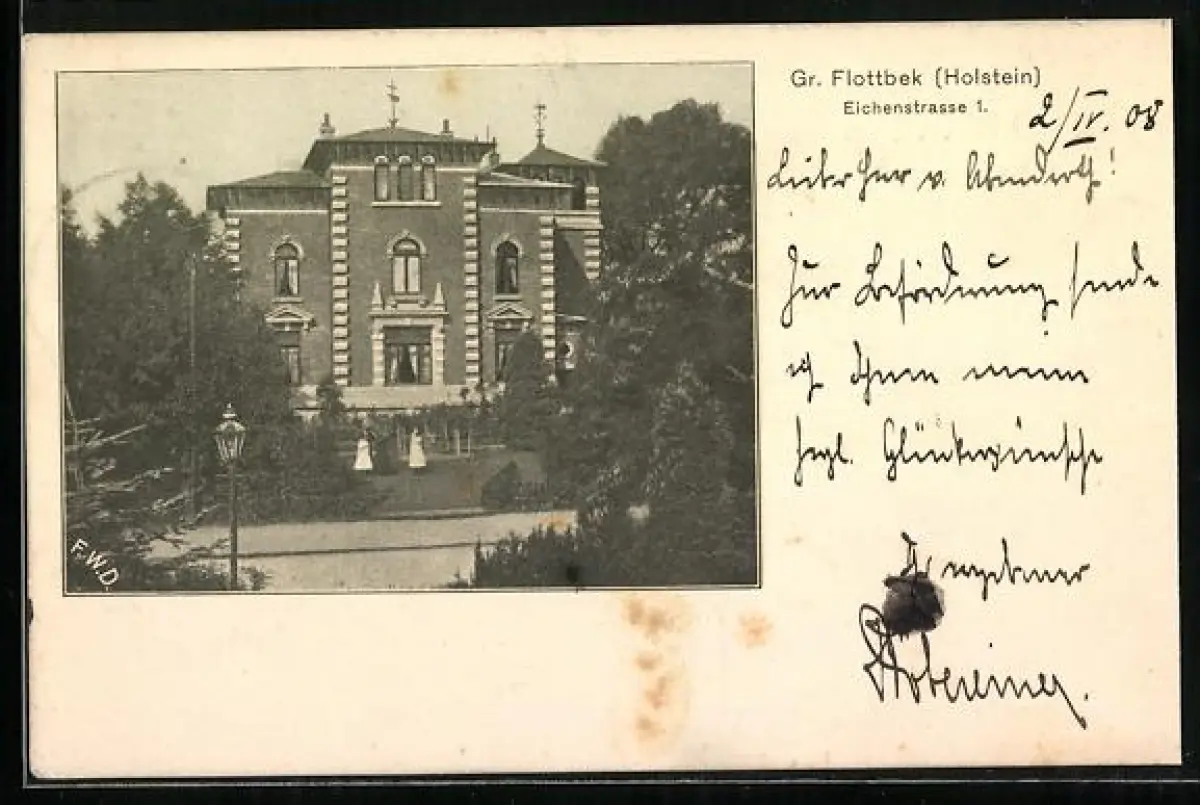 Gr. Flottbek (Holstein)
Eichenstrasse 1.
2/IV. 08
Lieber Herr v. Abendroth!
Zur Beförderung sende
ich Ihnen meine
hzgl. Glückwünsche
ergebener
F.W.D.